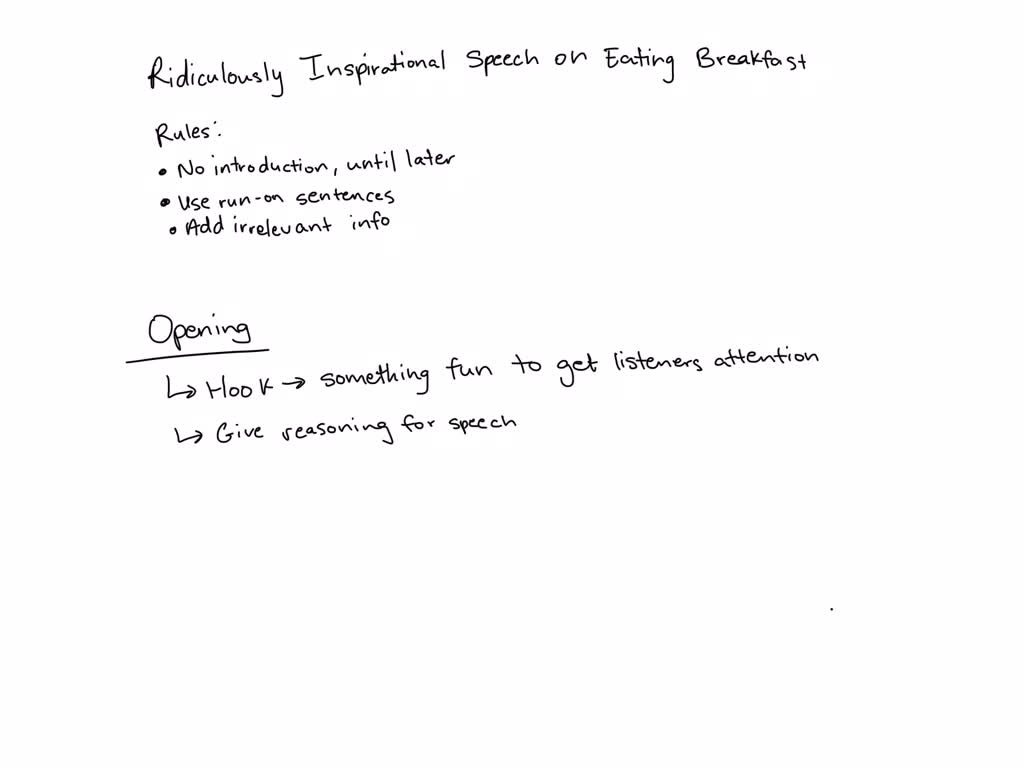 Ridiculously Inspirational Speech on Eating Breakfast
Rules:
• No introduction, until later
• Use run-on sentences
• Add irrelevant info
Opening
↳ Hook → something fun to get listeners attention
↳ Give reasoning for speech